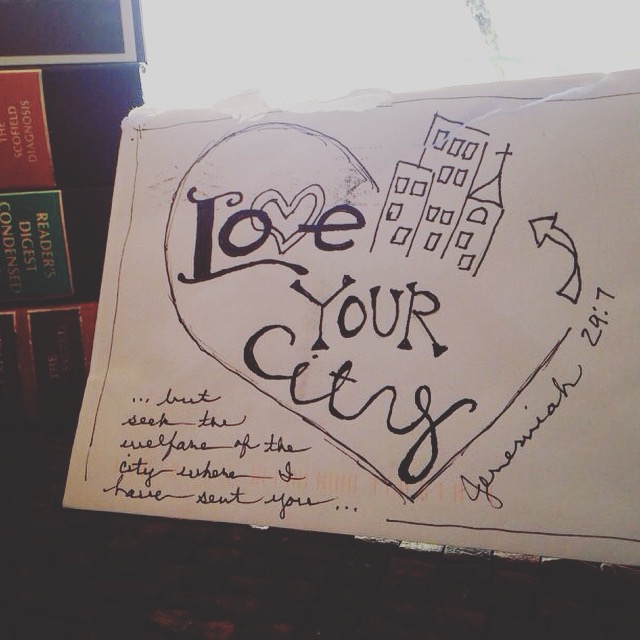 THE
SCOFIELD
DIAGNOSIS
READER'S
DIGEST
CONDENSED
Love
YOUR
City
Jeremiah 29:7
... but
seek the
welfare of the
city where I
have sent you ...